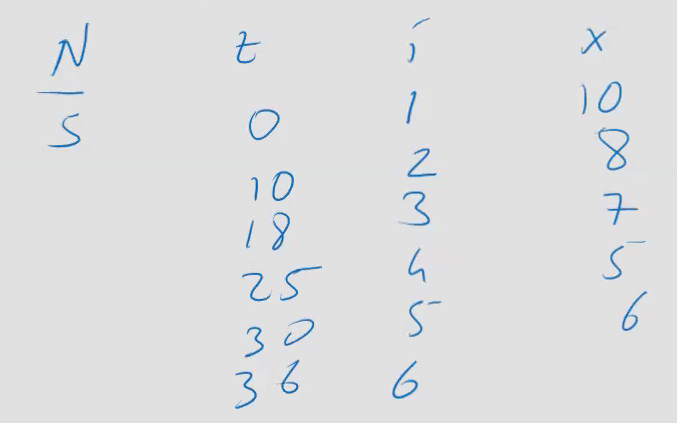 N t i x
5 0 1 10
10 2 8
18 3 7
25 4 5
30 5 6
36 6